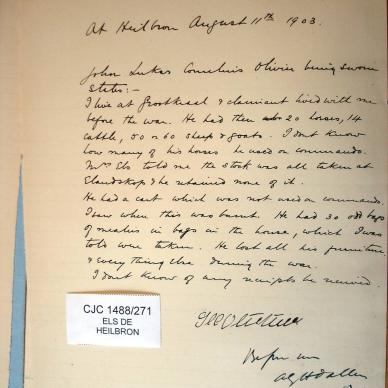 At Heilbron August 11th 1903.
John Lukas Cornelius Olivier being sworn
states:-
I live at Grootkraal & claimant lived with me
before the war. He had then 20 horses, 14
cattle, 50 or 60 sheep & goats. I don't know
how many of his horses he used on commando.
Mrs Els told me the stock was all taken at
Elandskop & he retained none of it.
He had a cart which was not used on commando.
I saw when this was burnt. He had 30 odd bags
of mealies in bags in the house, which I was
told were taken. He lost all his furniture
& everything else during the war.
I don't know of any receipts he received.
CJC 1488/271
ELS DE
HEILBRON
Before me